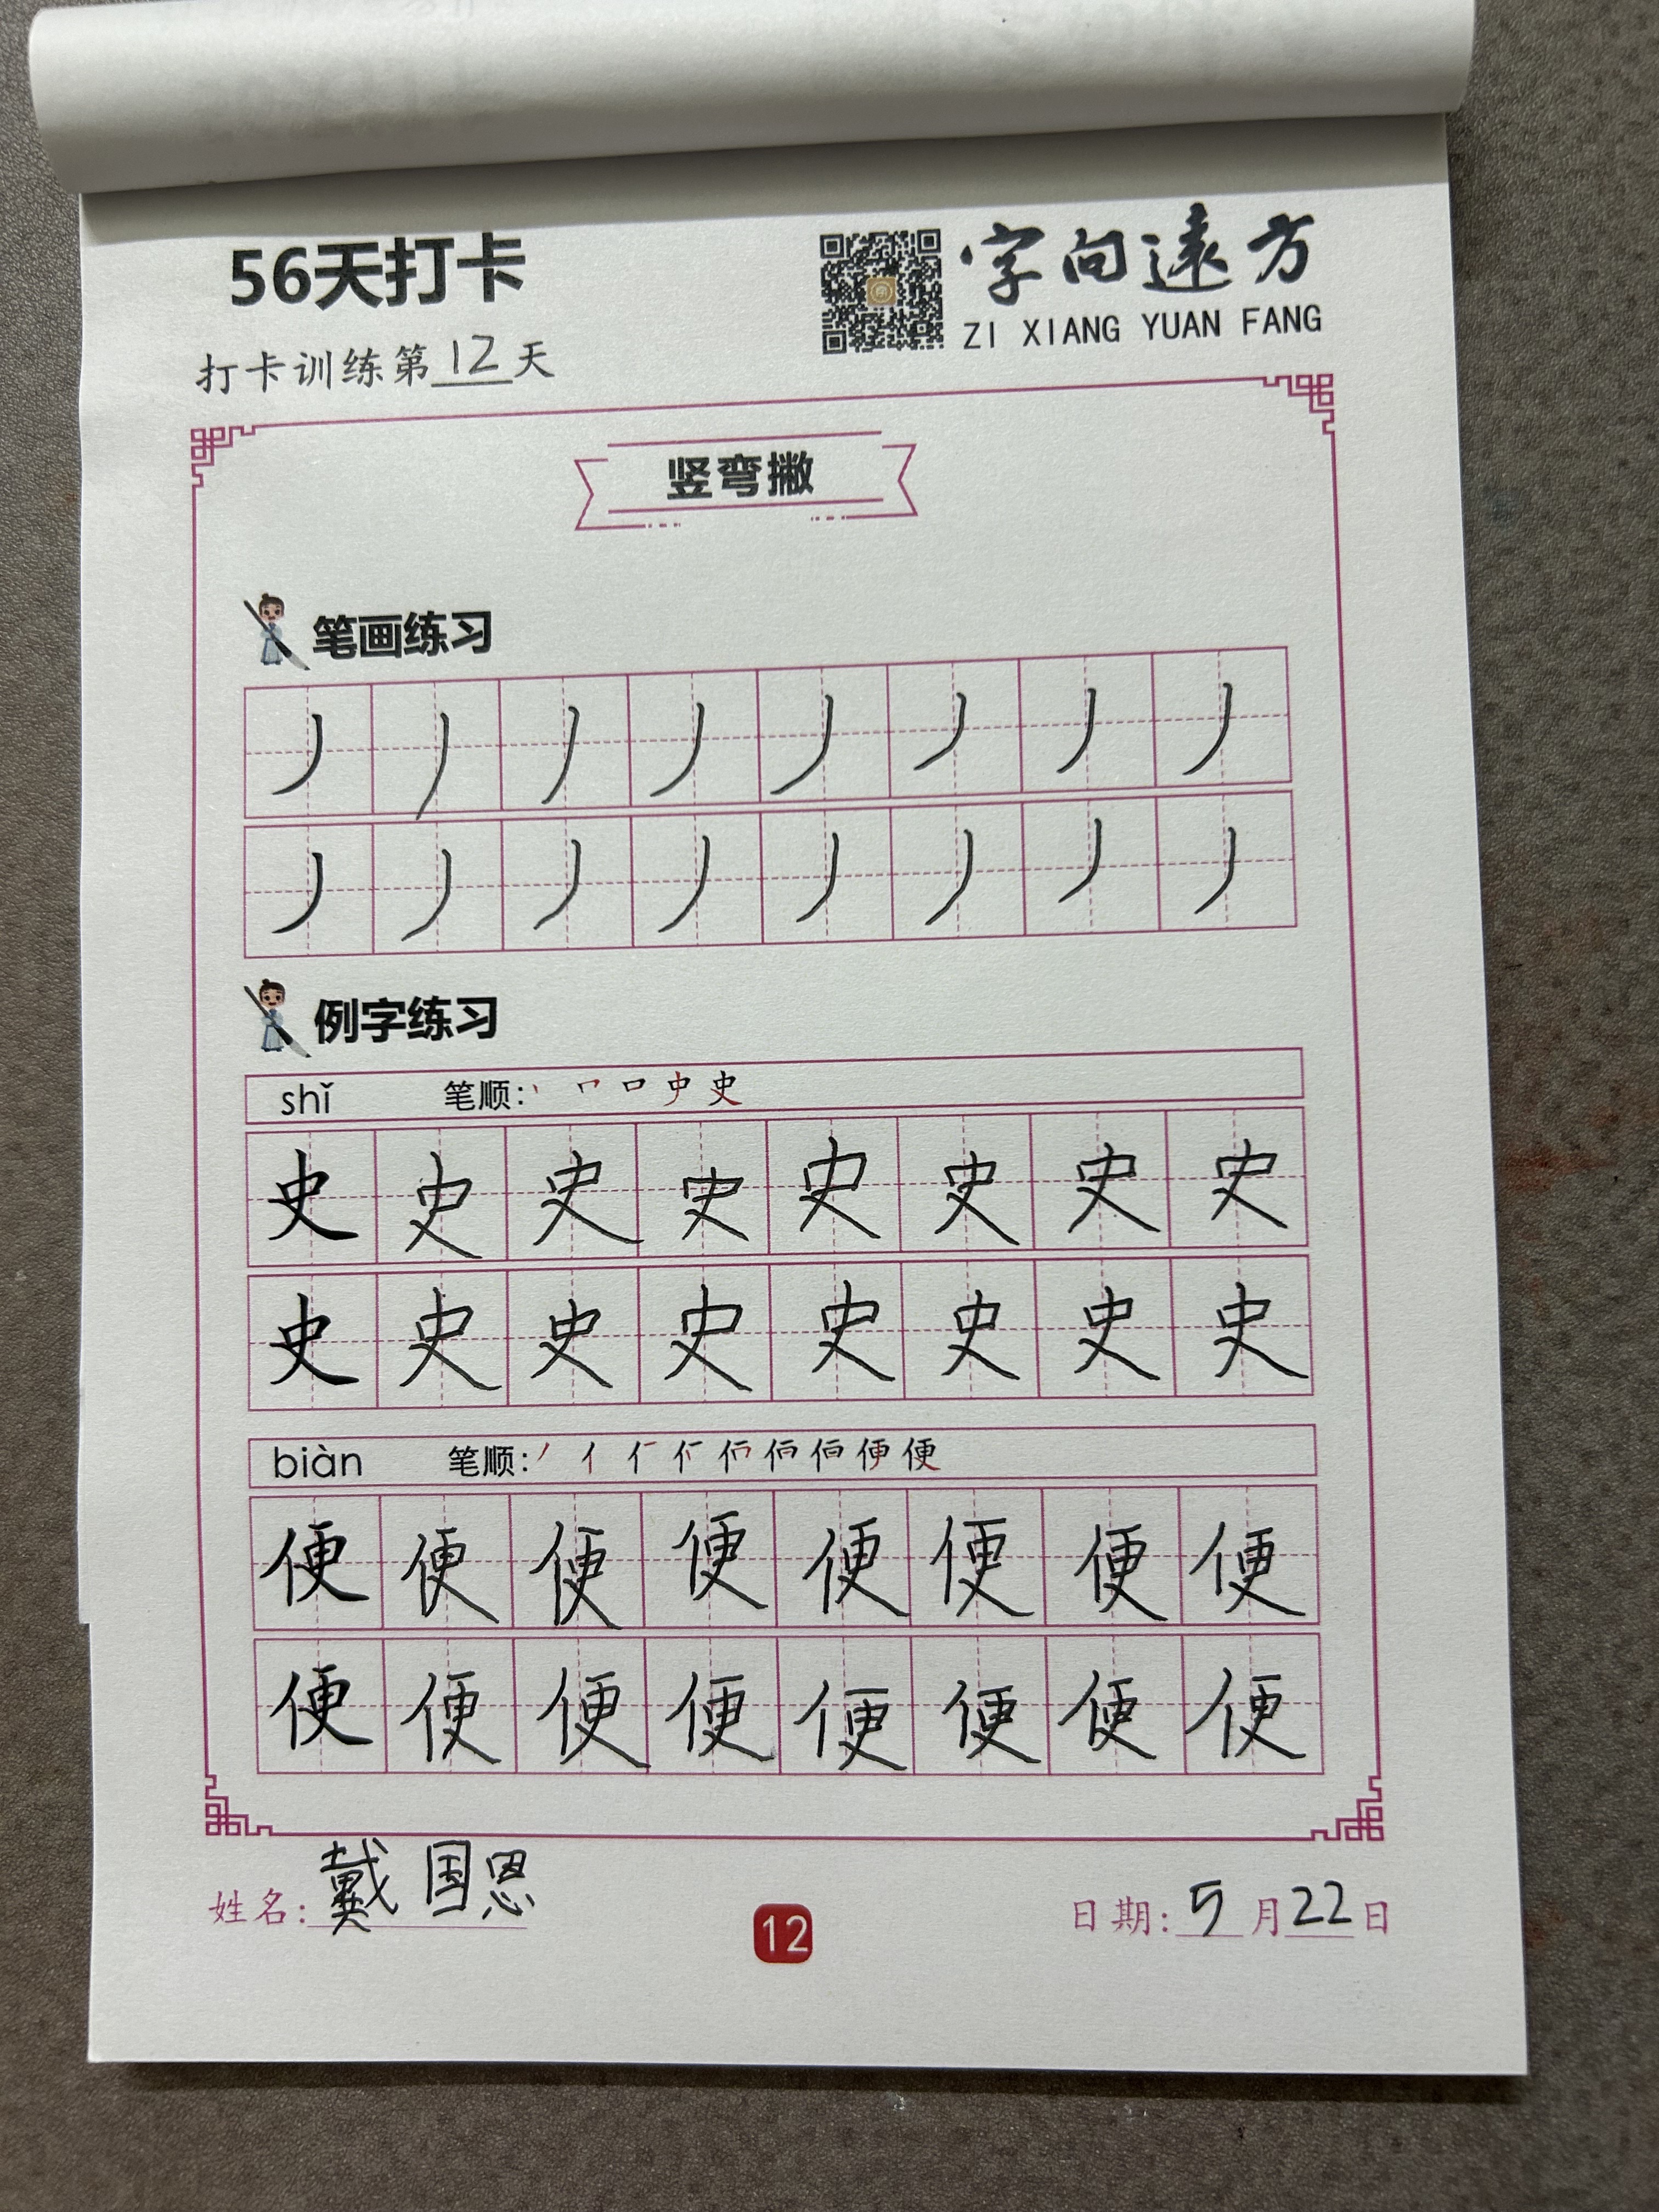 56天打卡
字向遠方
ZI XIANG YUAN FANG
打卡训练第12天
竖弯撇
笔画练习
丿丿丿丿丿丿丿丿
丿丿丿丿丿丿丿丿
例字练习
shǐ 笔顺：丶 口 史
史史史史史史史史
史史史史史史史史
biàn 笔顺：丿 亻 便
便便便便便便便便
便便便便便便便便
姓名：戴国恩
12
日期：5月22日